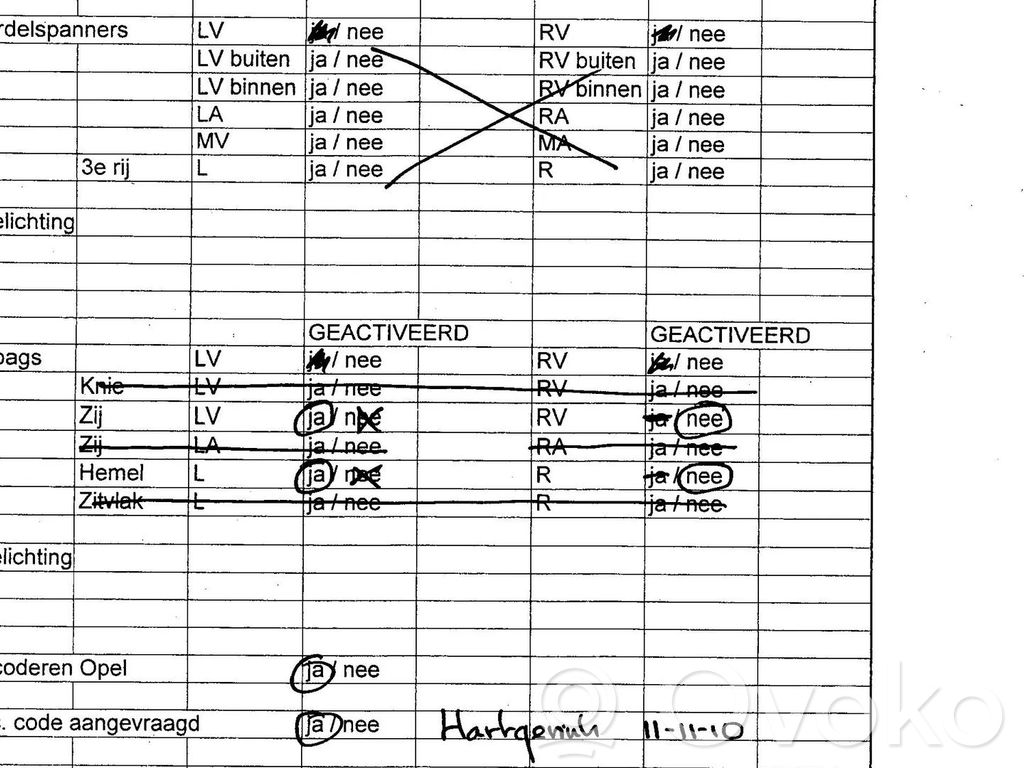 rdelspanners LV ja / nee RV ja / nee
LV buiten ja / nee RV buiten ja / nee
LV binnen ja / nee RV binnen ja / nee
LA ja / nee RA ja / nee
MV ja / nee MA ja / nee
3e rij L ja / nee R ja / nee
elichting
GEACTIVEERD GEACTIVEERD
bags LV ja / nee RV ja / nee
Knie LV ja / nee RV ja / nee
Zij LV ja / nee RV ja / nee
Zij LA ja / nee RA ja / nee
Hemel L ja / nee R ja / nee
Zitvlak L ja / nee R ja / nee
elichting
coderen Opel ja / nee
s. code aangevraagd ja / nee 11-11-10
Ovoko